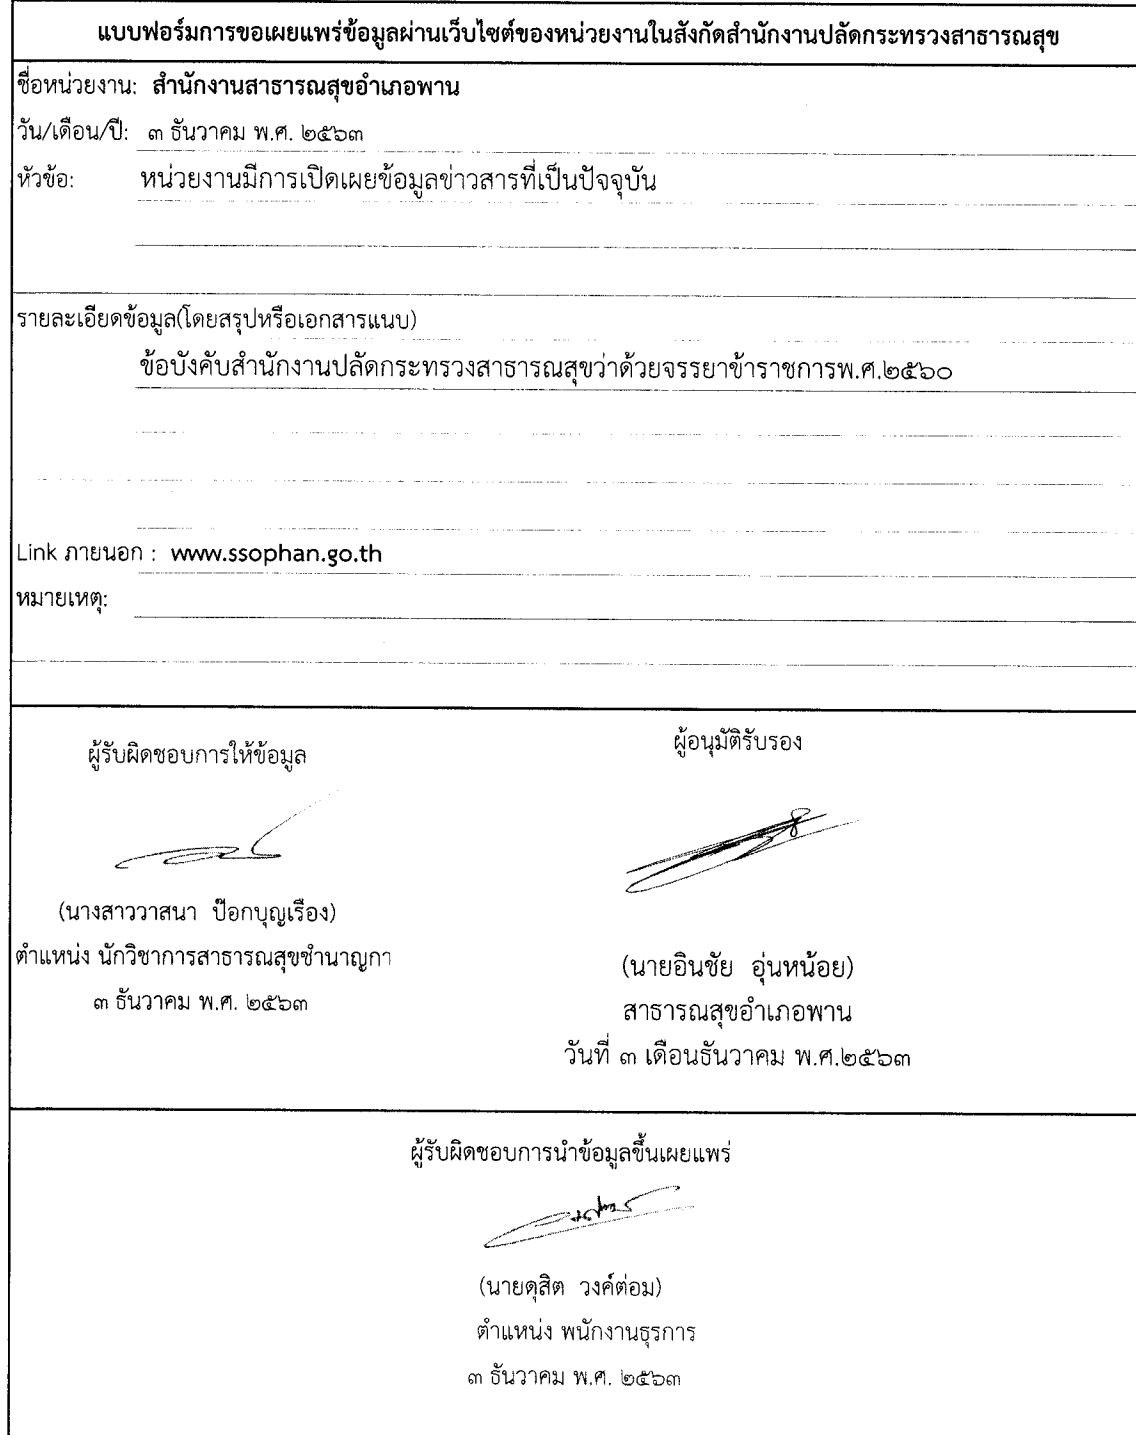 แบบฟอร์มการขอเผยแพร่ข้อมูลผ่านเว็บไซต์ของหน่วยงานในสังกัดสำนักงานปลัดกระทรวงสาธารณสุข
ชื่อหน่วยงาน: สำนักงานสาธารณสุขอำเภอพาน
วัน/เดือน/ปี: ๓ ธันวาคม พ.ศ. ๒๕๖๓
หัวข้อ: หน่วยงานมีการเปิดเผยข้อมูลข่าวสารที่เป็นปัจจุบัน
รายละเอียดข้อมูล(โดยสรุปหรือเอกสารแนบ)
ข้อบังคับสำนักงานปลัดกระทรวงสาธารณสุขว่าด้วยจรรยาข้าราชการพ.ศ.๒๕๖๐
Link ภายนอก : www.ssophan.go.th
หมายเหตุ:
ผู้รับผิดชอบการให้ข้อมูล
(นางสาววาสนา ป๊อกบุญเรือง)
ตำแหน่ง นักวิชาการสาธารณสุขชำนาญกา
๓ ธันวาคม พ.ศ. ๒๕๖๓
ผู้อนุมัติรับรอง
(นายอินชัย อุ่นหน้อย)
สาธารณสุขอำเภอพาน
วันที่ ๓ เดือนธันวาคม พ.ศ.๒๕๖๓
ผู้รับผิดชอบการนำข้อมูลขึ้นเผยแพร่
(นายดุสิต วงค์ต่อม)
ตำแหน่ง พนักงานธุรการ
๓ ธันวาคม พ.ศ. ๒๕๖๓